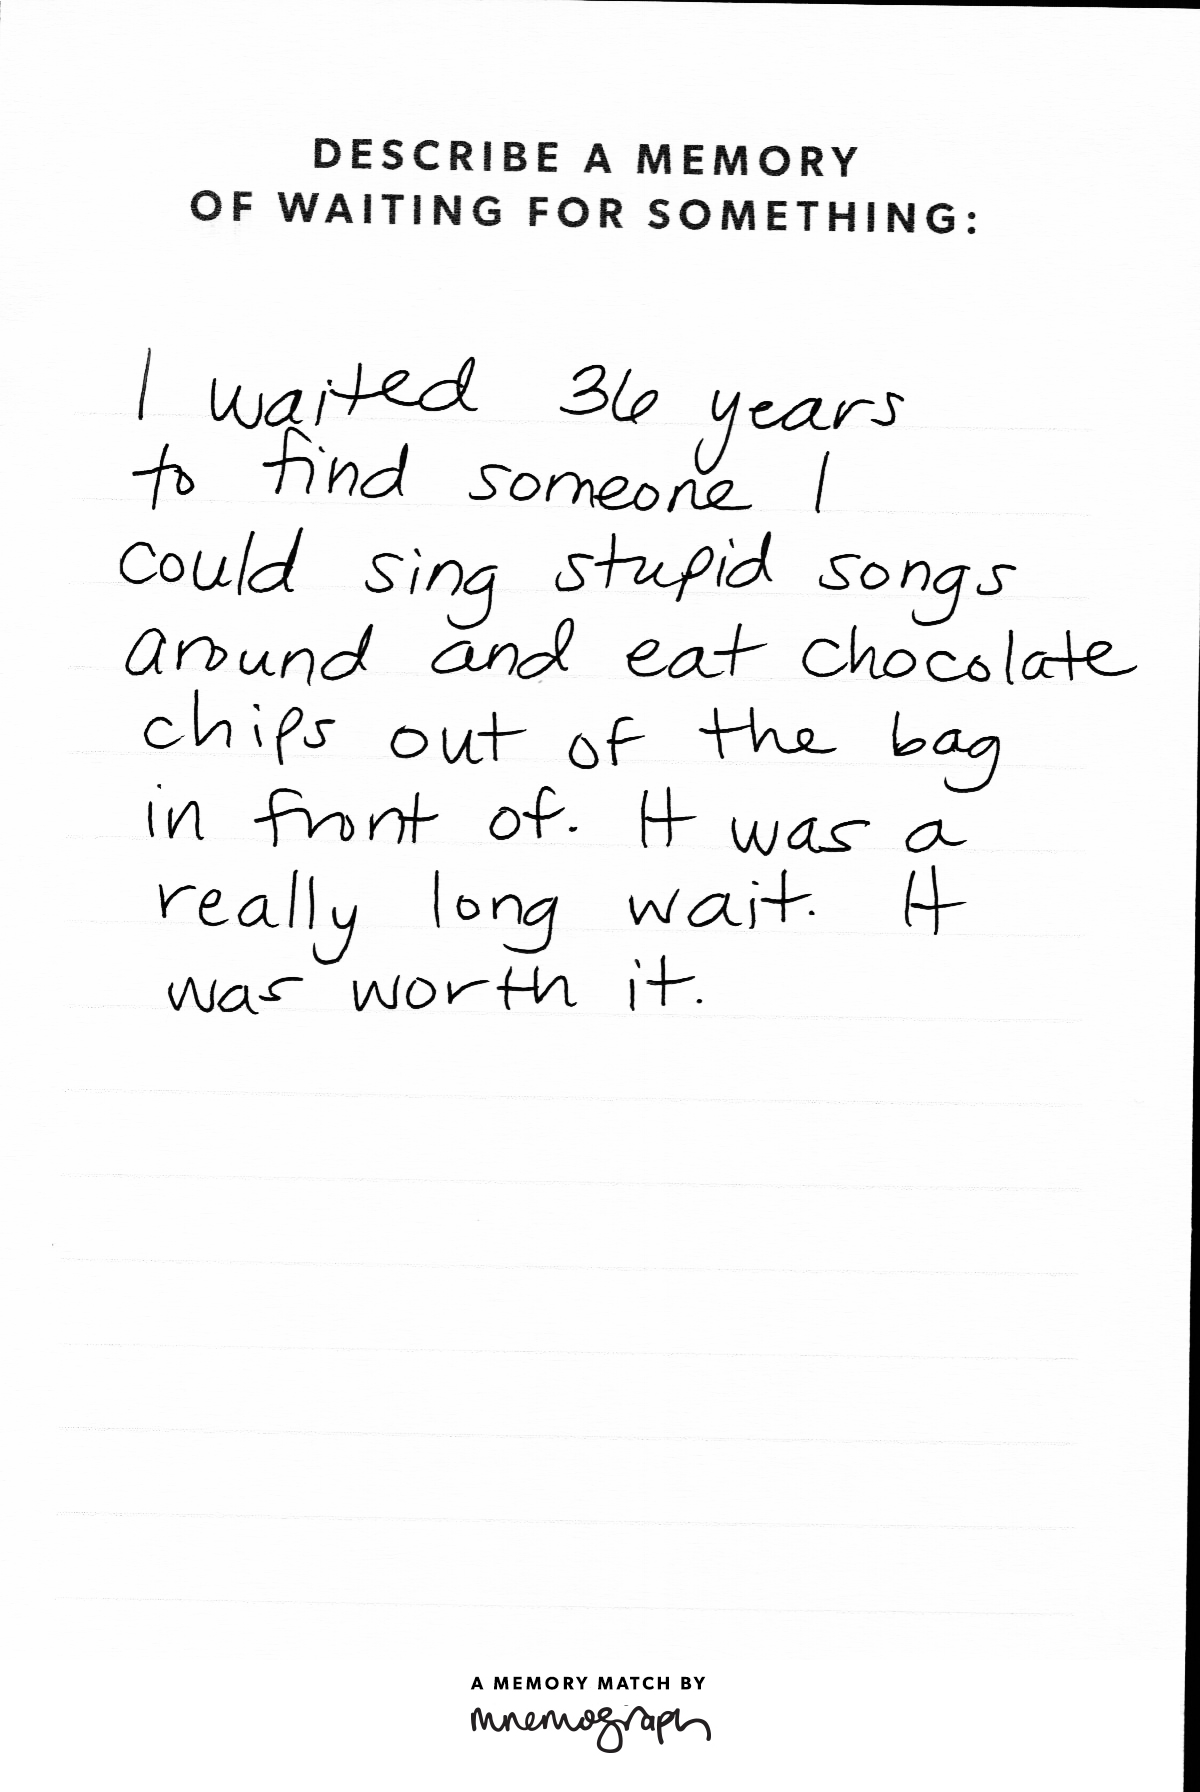 DESCRIBE A MEMORY
OF WAITING FOR SOMETHING:
I waited 36 years
to find someone I
could sing stupid songs
around and eat chocolate
chips out of the bag
in front of. It was a
really long wait. It
was worth it.
A MEMORY MATCH BY
mnemograph